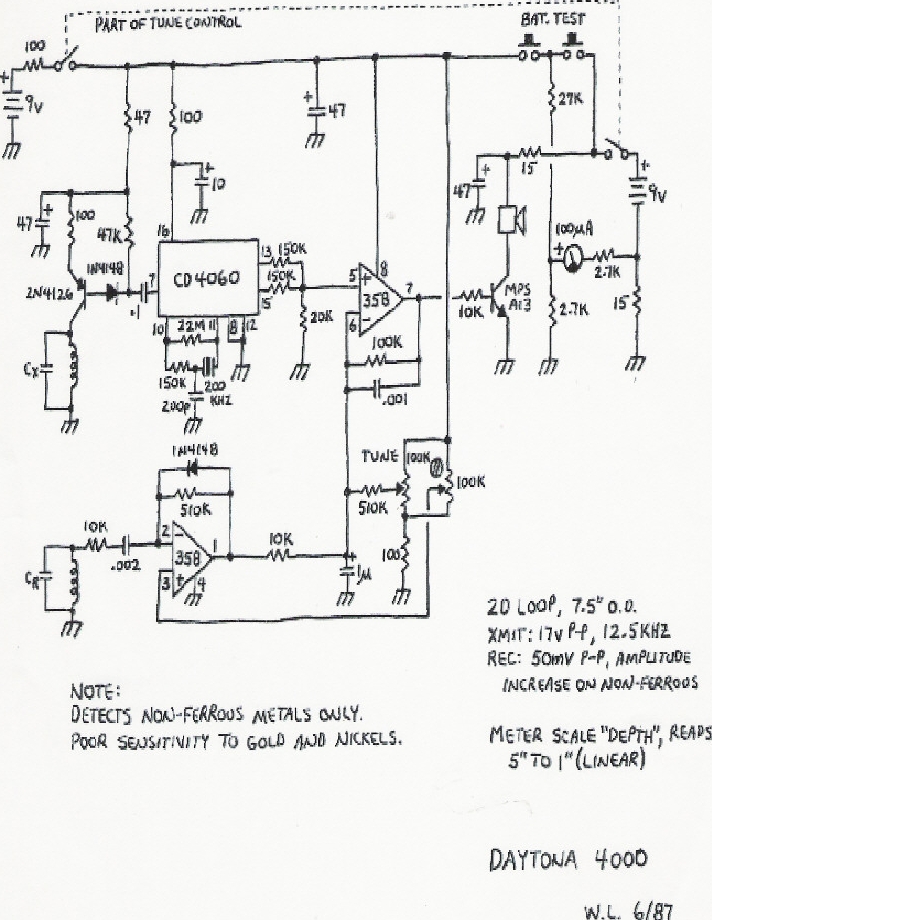 PART OF TUNE CONTROL
BAT. TEST
100
+
9V
47
100
+
47
27K
+
10
15
47
+
+
9V
47
+
100
47K
16
1N4148
2N4126
.1
7
CD4060
13
150K
150K
15
20K
5
+
8
358
7
6
-
100K
.001
10K
MPS
A13
100µA
+
2.7K
2.7K
15
10
22M
11
8
12
150K
200
KHZ
200P
CX
1N4148
510K
10K
.002
2
-
1
358
3
+
4
CR
10K
TUNE
100K
100K
510K
+
1µ
100
2D LOOP, 7.5" O.D.
XMIT: 17V P-P, 12.5KHZ
REC: 50mV P-P, AMPLITUDE
INCREASE ON NON-FERROUS
NOTE:
DETECTS NON-FERROUS METALS ONLY.
POOR SENSITIVITY TO GOLD AND NICKELS.
METER SCALE "DEPTH", READS
5" TO 1" (LINEAR)
DAYTONA 4000
W.L. 6/87